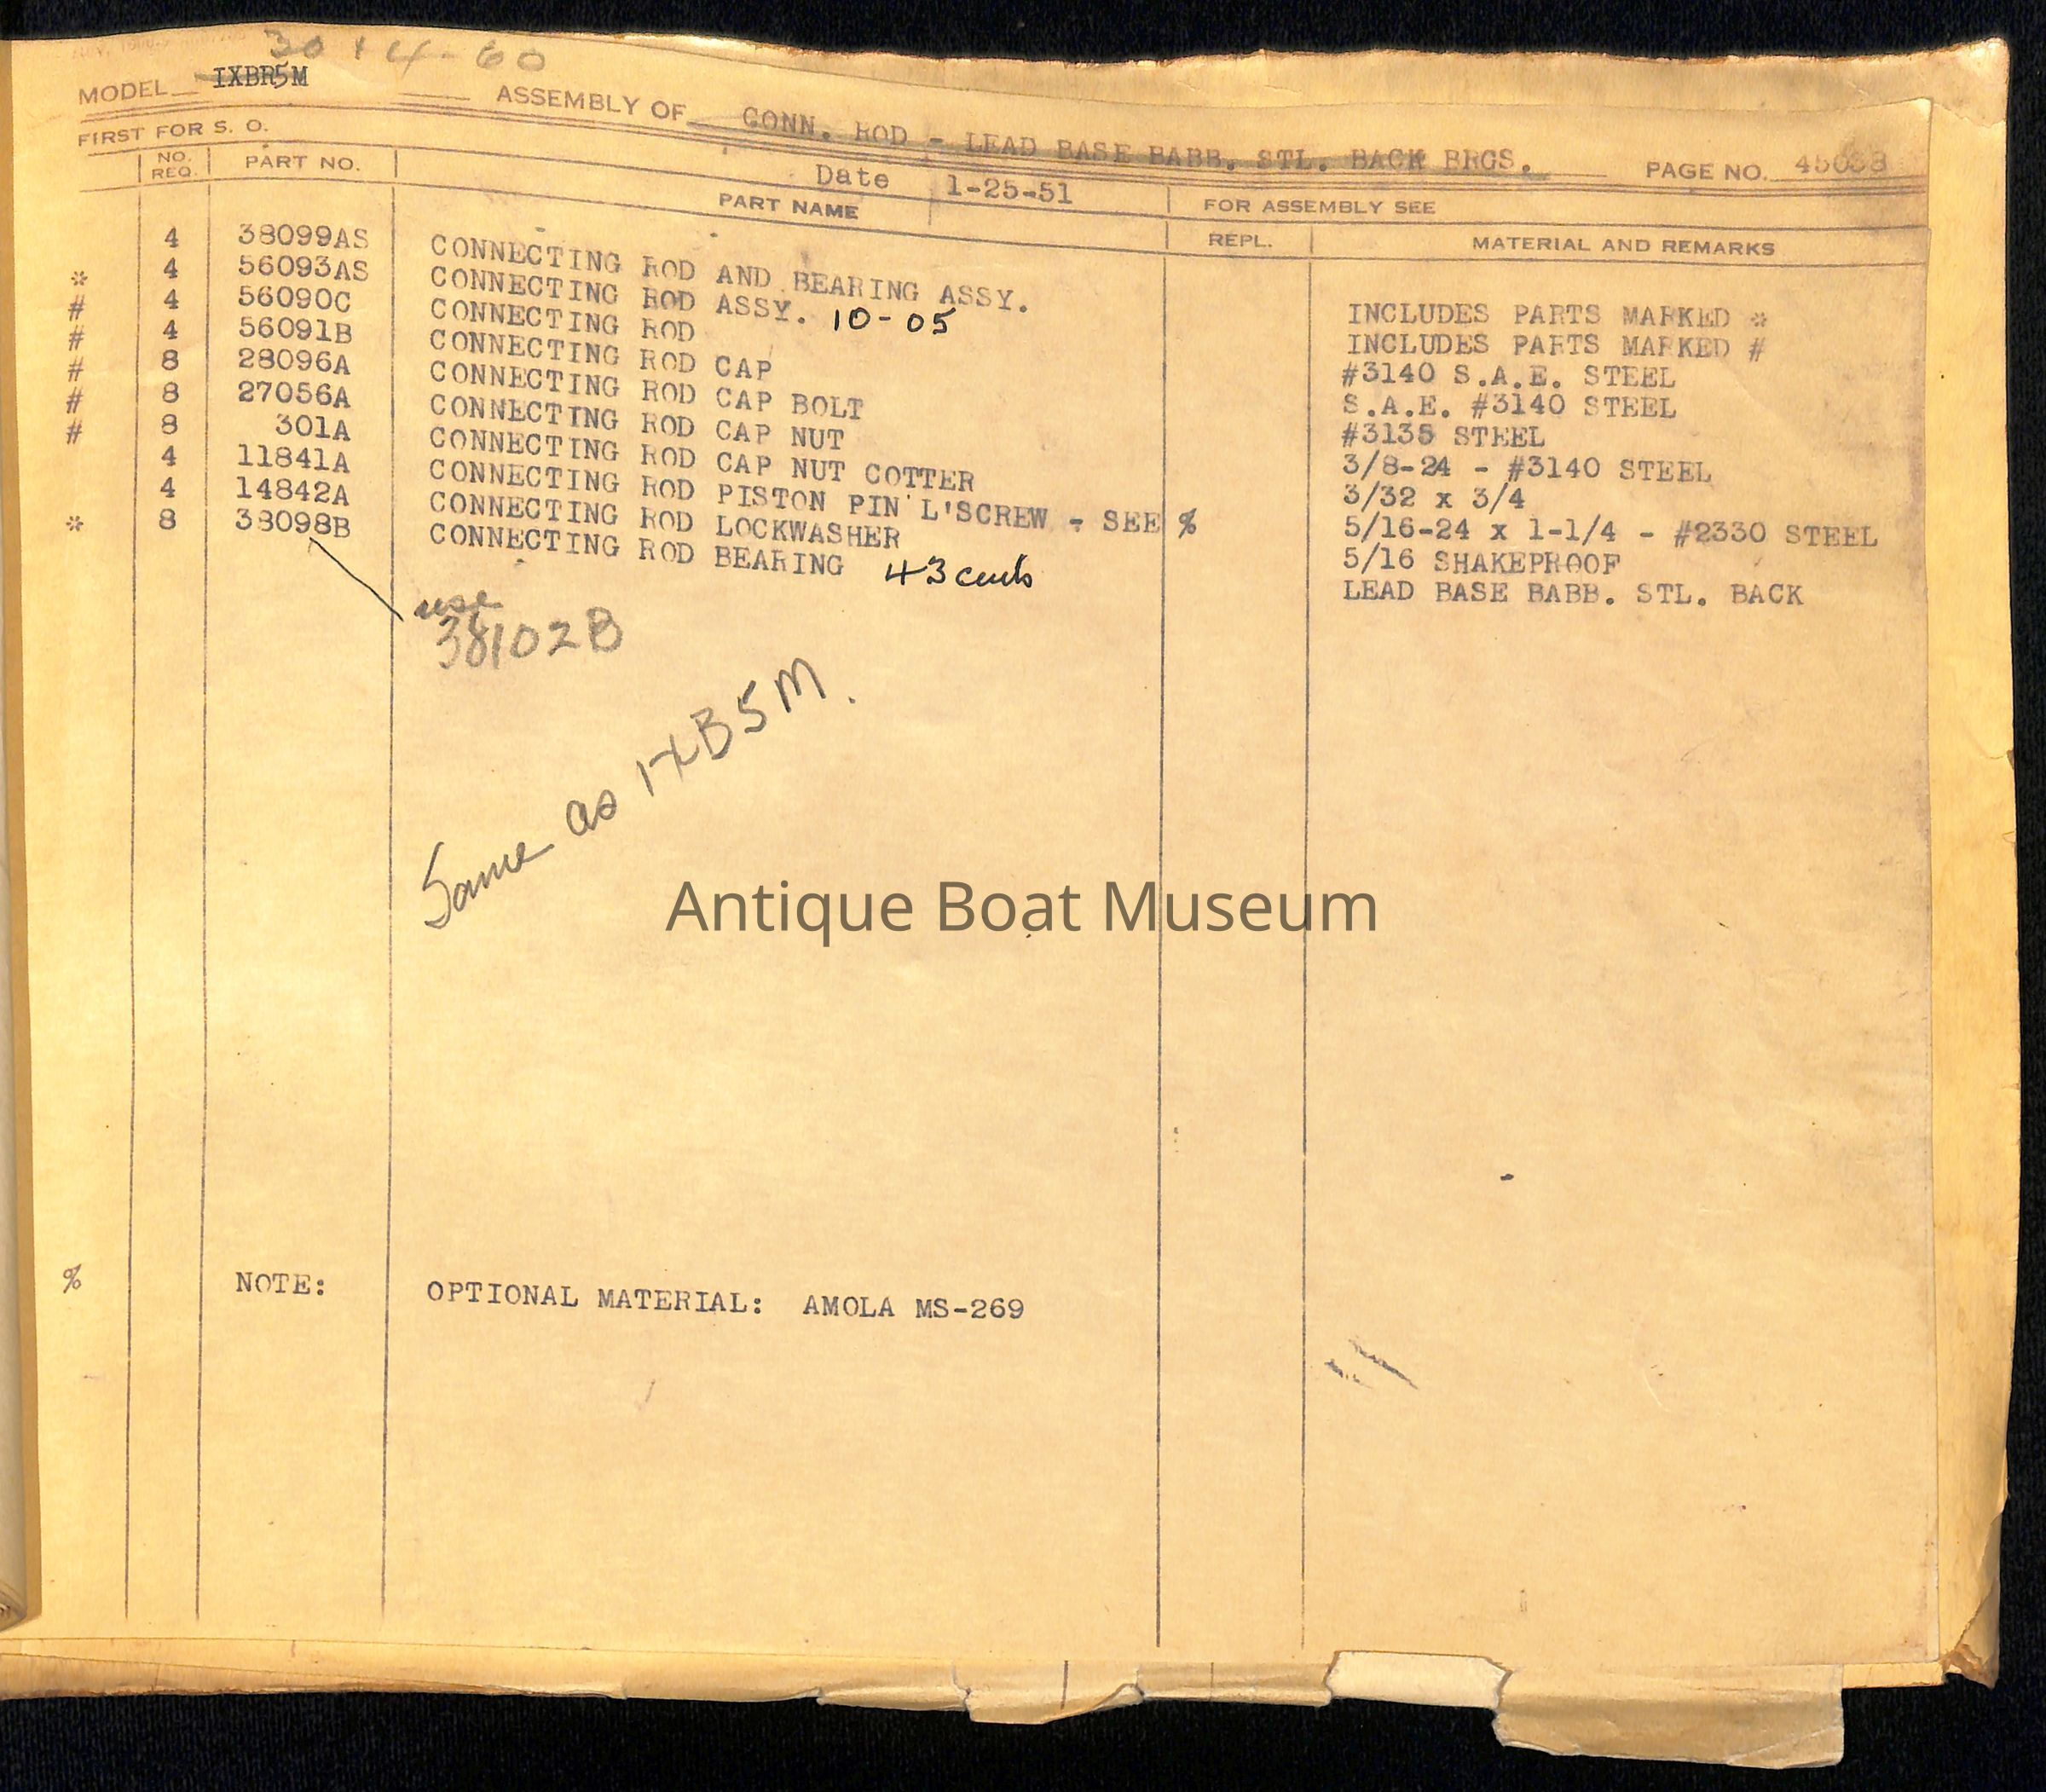 30 14-60
MODEL IXBR5M ASSEMBLY OF CONN. ROD - LEAD BASE BABB. STL. BACK BRGS. PAGE NO.
FIRST FOR S. O. Date 1-25-51 FOR ASSEMBLY SEE
NO. REQ. PART NO. PART NAME REPL. MATERIAL AND REMARKS
4 38099AS CONNECTING ROD AND BEARING ASSY. INCLUDES PARTS MARKED *
* 4 56093AS CONNECTING ROD ASSY. 10-05 INCLUDES PARTS MARKED #
# 4 56090C CONNECTING ROD #3140 S.A.E. STEEL
# 4 56091B CONNECTING ROD CAP S.A.E. #3140 STEEL
# 8 28096A CONNECTING ROD CAP BOLT #3135 STEEL
# 8 27056A CONNECTING ROD CAP NUT 3/8-24 - #3140 STEEL
# 8 301A CONNECTING ROD CAP NUT COTTER 3/32 x 3/4
4 11841A CONNECTING ROD PISTON PIN L'SCREW - SEE % 5/16-24 x 1-1/4 - #2330 STEEL
4 14842A CONNECTING ROD LOCKWASHER 5/16 SHAKEPROOF
* 8 38098B CONNECTING ROD BEARING 43 cents LEAD BASE BABB. STL. BACK
use
38102B
Same as 1XB5M.
Antique Boat Museum
% NOTE: OPTIONAL MATERIAL: AMOLA MS-269